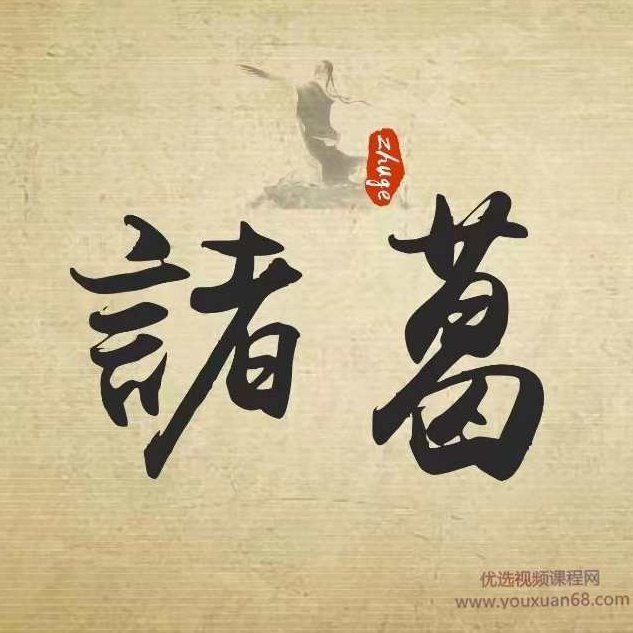 zhuge
諸葛
优选视频课程网
www.youxuan68.com